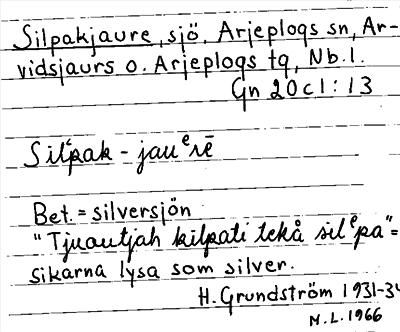 Silpakjaure, sjö. Arjeplogs sn, Ar-
vidsjaurs o. Arjeplogs tg, Nb.l.
Gn 20c1:13
Silᵉpak - jauᵉrē
Bet. = silversjön
"Tjuautjah kilpati tekå silᵉpa" =
sikarna lysa som silver.
H. Grundström 1931-34
M.L. 1966